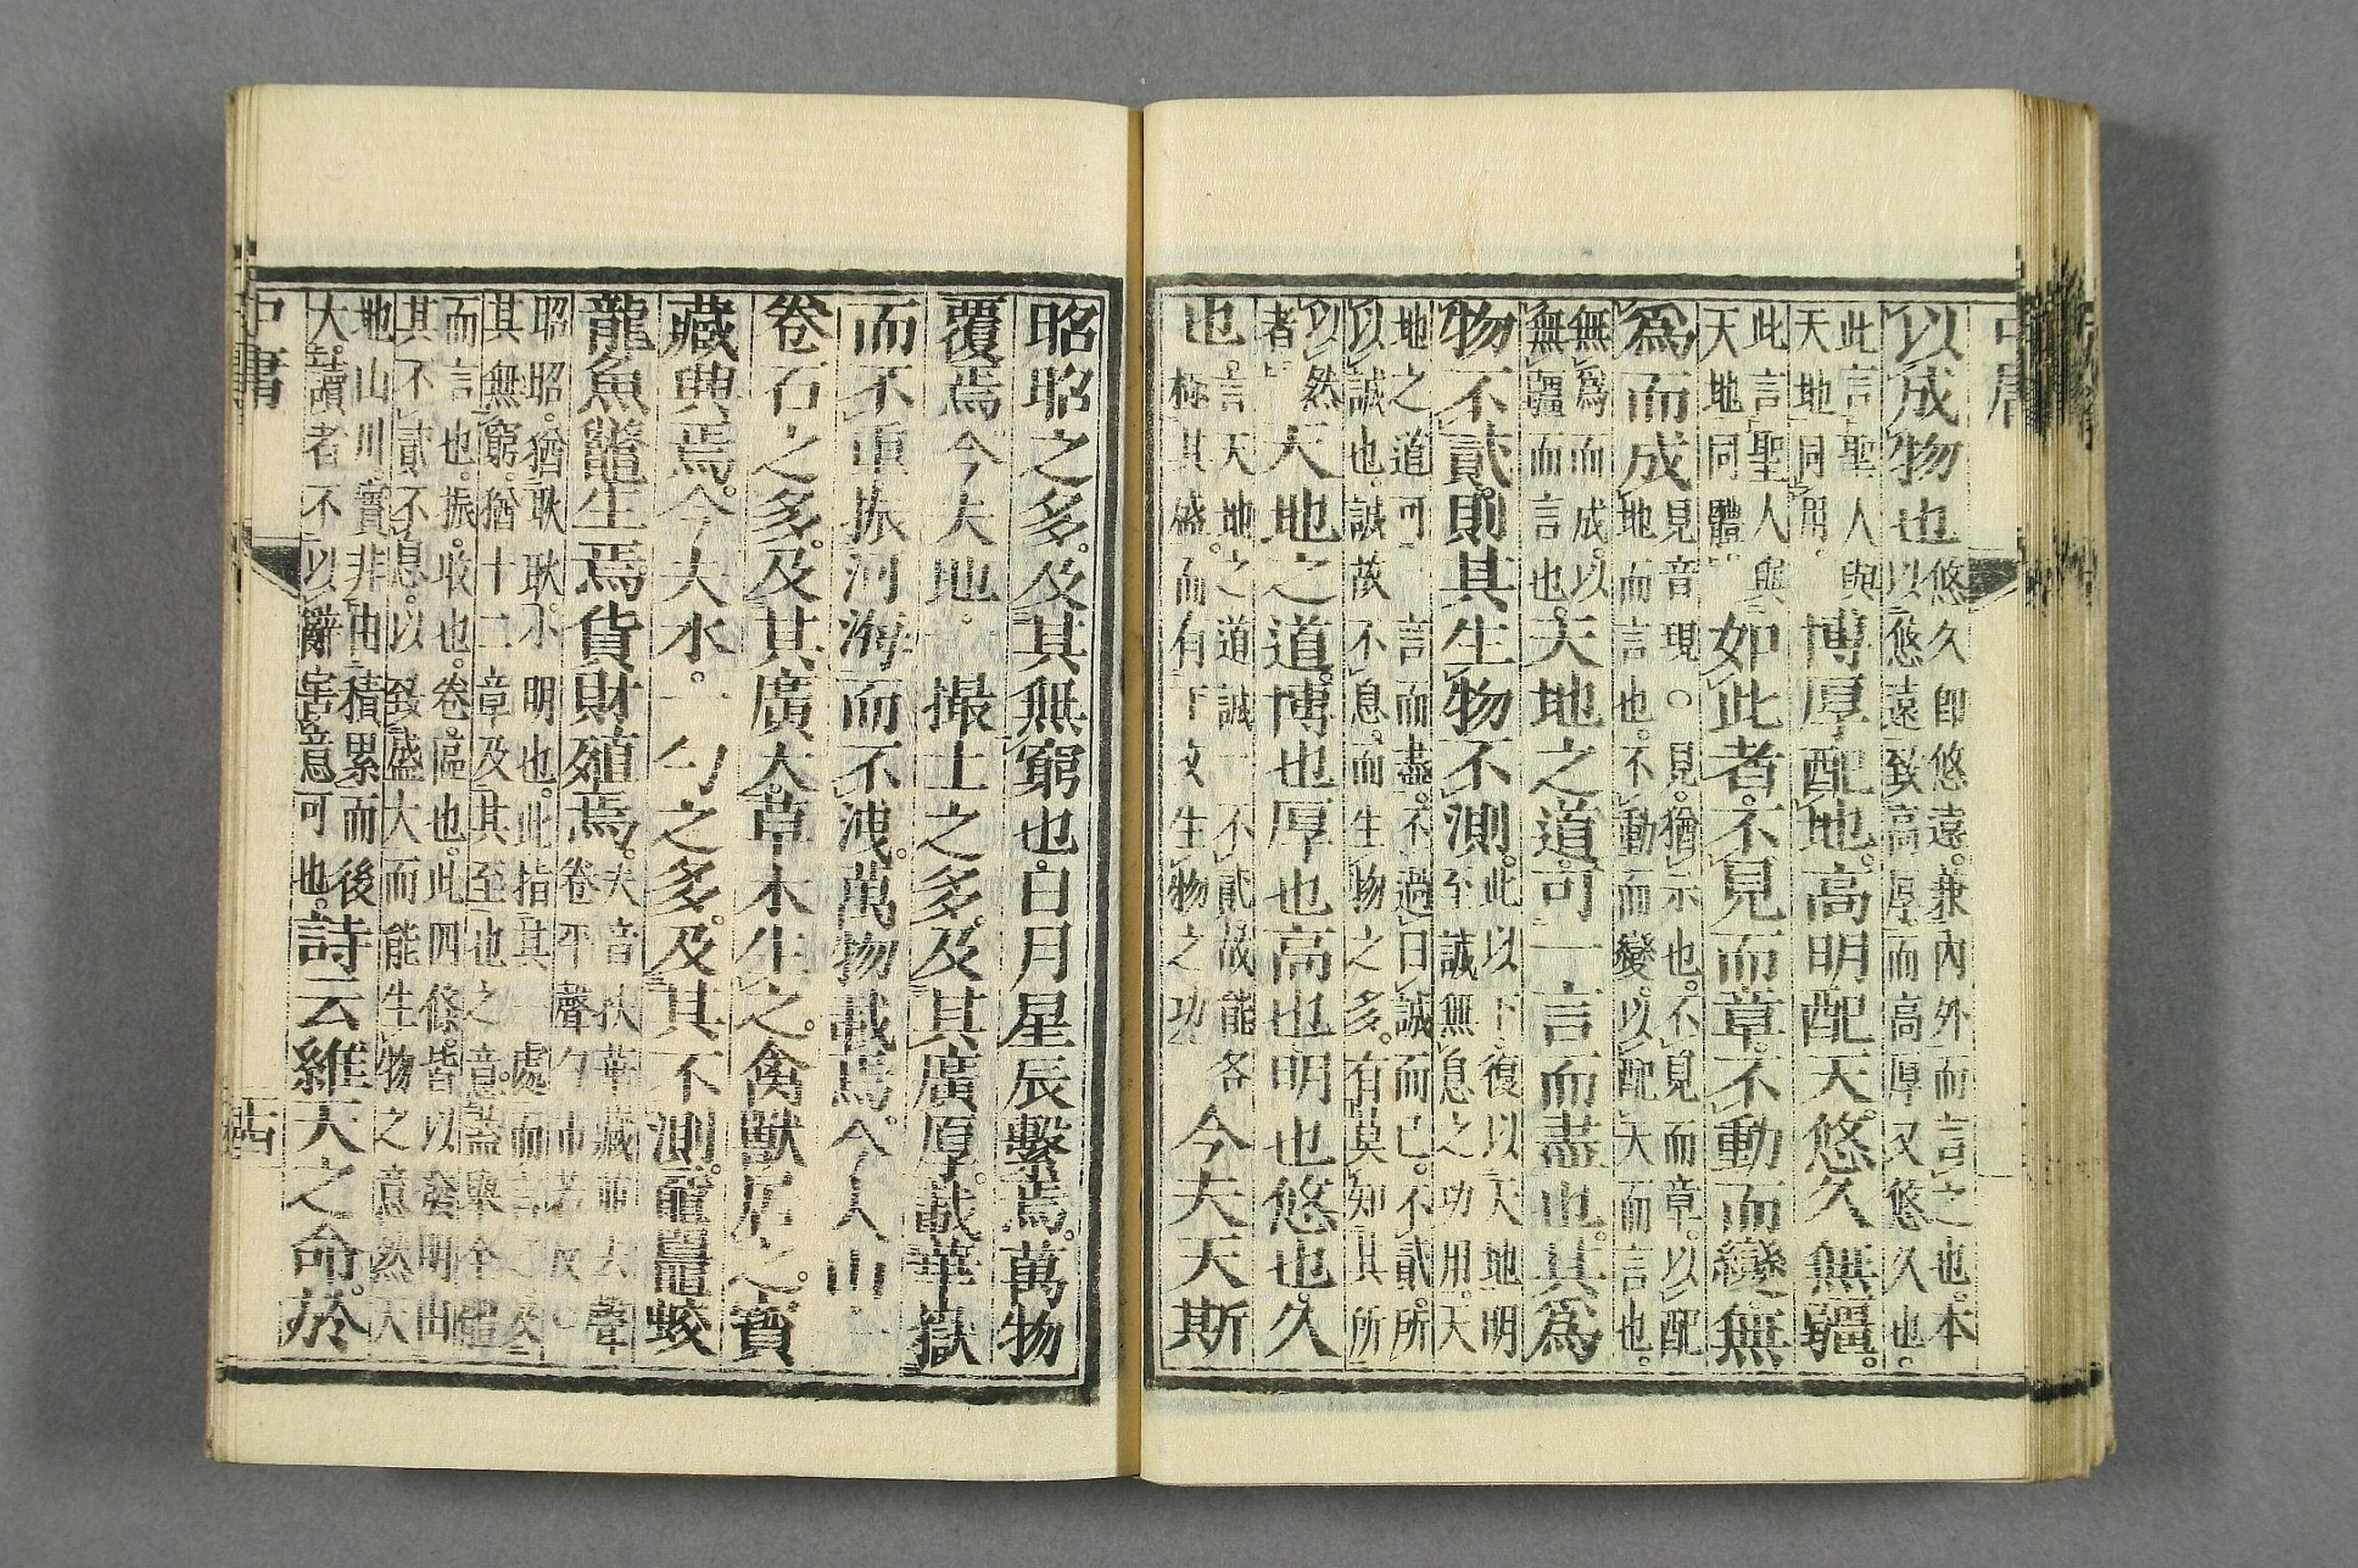 中庸
以成物也悠久卽悠遠。兼內外而言之也。本以悠遠致高厚而高厚又悠久也。
此言聖人與天地同用。博厚配地。高明配天。悠久無疆。
此言聖人與天地同體。如此者。不見而章。不動而變。無
爲而成見音現○見。猶示也。不見而章。以配地而言也。不動而變。以配天而言也。
無爲而成。以無疆而言也。天地之道。可一言而盡也。其爲
物不貳。則其生物不測。此以下復以天地明至誠無息之功用。天
地之道可言而盡。不過曰誠而已。不貳。所以誠也。誠故不息。而生物之多。有莫知其所
以然者天地之道。博也厚也高也明也悠也。久
也。言天地之道誠一不貳故能各極其盛。而有下文生物之功今夫天斯
昭昭之多。及其無窮也。日月星辰繫焉。萬物
覆焉今夫地。撮土之多。及其廣厚。載華嶽
而不重振河海而不洩。萬物載焉。今夫山
卷石之多。及其廣大。草木生之。禽獸居之。寶
藏興焉。今夫水。一勺之多。及其不測。黿鼉蛟
龍魚鼈生焉。貨財殖焉。夫音扶華藏並去聲卷平聲勺市若反○
昭昭。猶耿耿。小明也。此指其一處而言之。及其無窮。猶十二章及其至也之意。蓋舉全體
而言也。振。收也。卷。區也。此四條。皆以發明由其不貳不息。以致盛大而能生物之意然天
地山川。實非由積累而後大。讀者不以辭害意可也。詩云維天之命。於
中庸